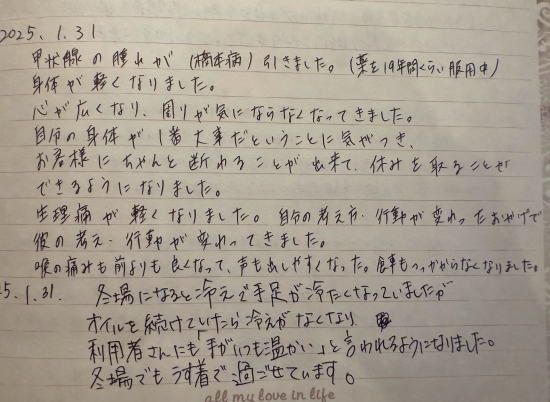 2025.1.31
甲状腺の腫れが(橋本病)引きました。(薬を19年間くらい服用中)
身体が軽くなりました。
心が広くなり、周りが気にならなくなってきました。
自分の身体が1番大事だということに気がつき、
お客様にちゃんと断わることが出来て、休みを取ることが
できるようになりました。
生理痛が軽くなりました。自分の考え方・行動が変わったおかげで
彼の考え・行動が変わってきました。
喉の痛みも前よりも良くなって、声も出しやすくなった。食事もつっかからなくなりました。
5.1.31. 冬場になると冷えで手足が冷たくなっていましたが
オイルを続けていたら冷えがなくなり
利用者さんにも「手がいつも温かい」と言われるようになりました。
冬場でもうす着で過ごせています。
all my love in life